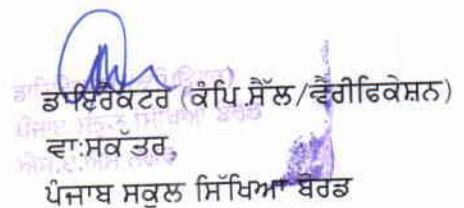 ਡਾਇਰੈਕਟਰ (ਕੰਪਿ.ਸੈੱਲ/ਵੈਰੀਫਿਕੇਸ਼ਨ)
ਵਾ:ਸਕੱਤਰ,
ਪੰਜਾਬ ਸਕੂਲ ਸਿੱਖਿਆ ਬੋਰਡ